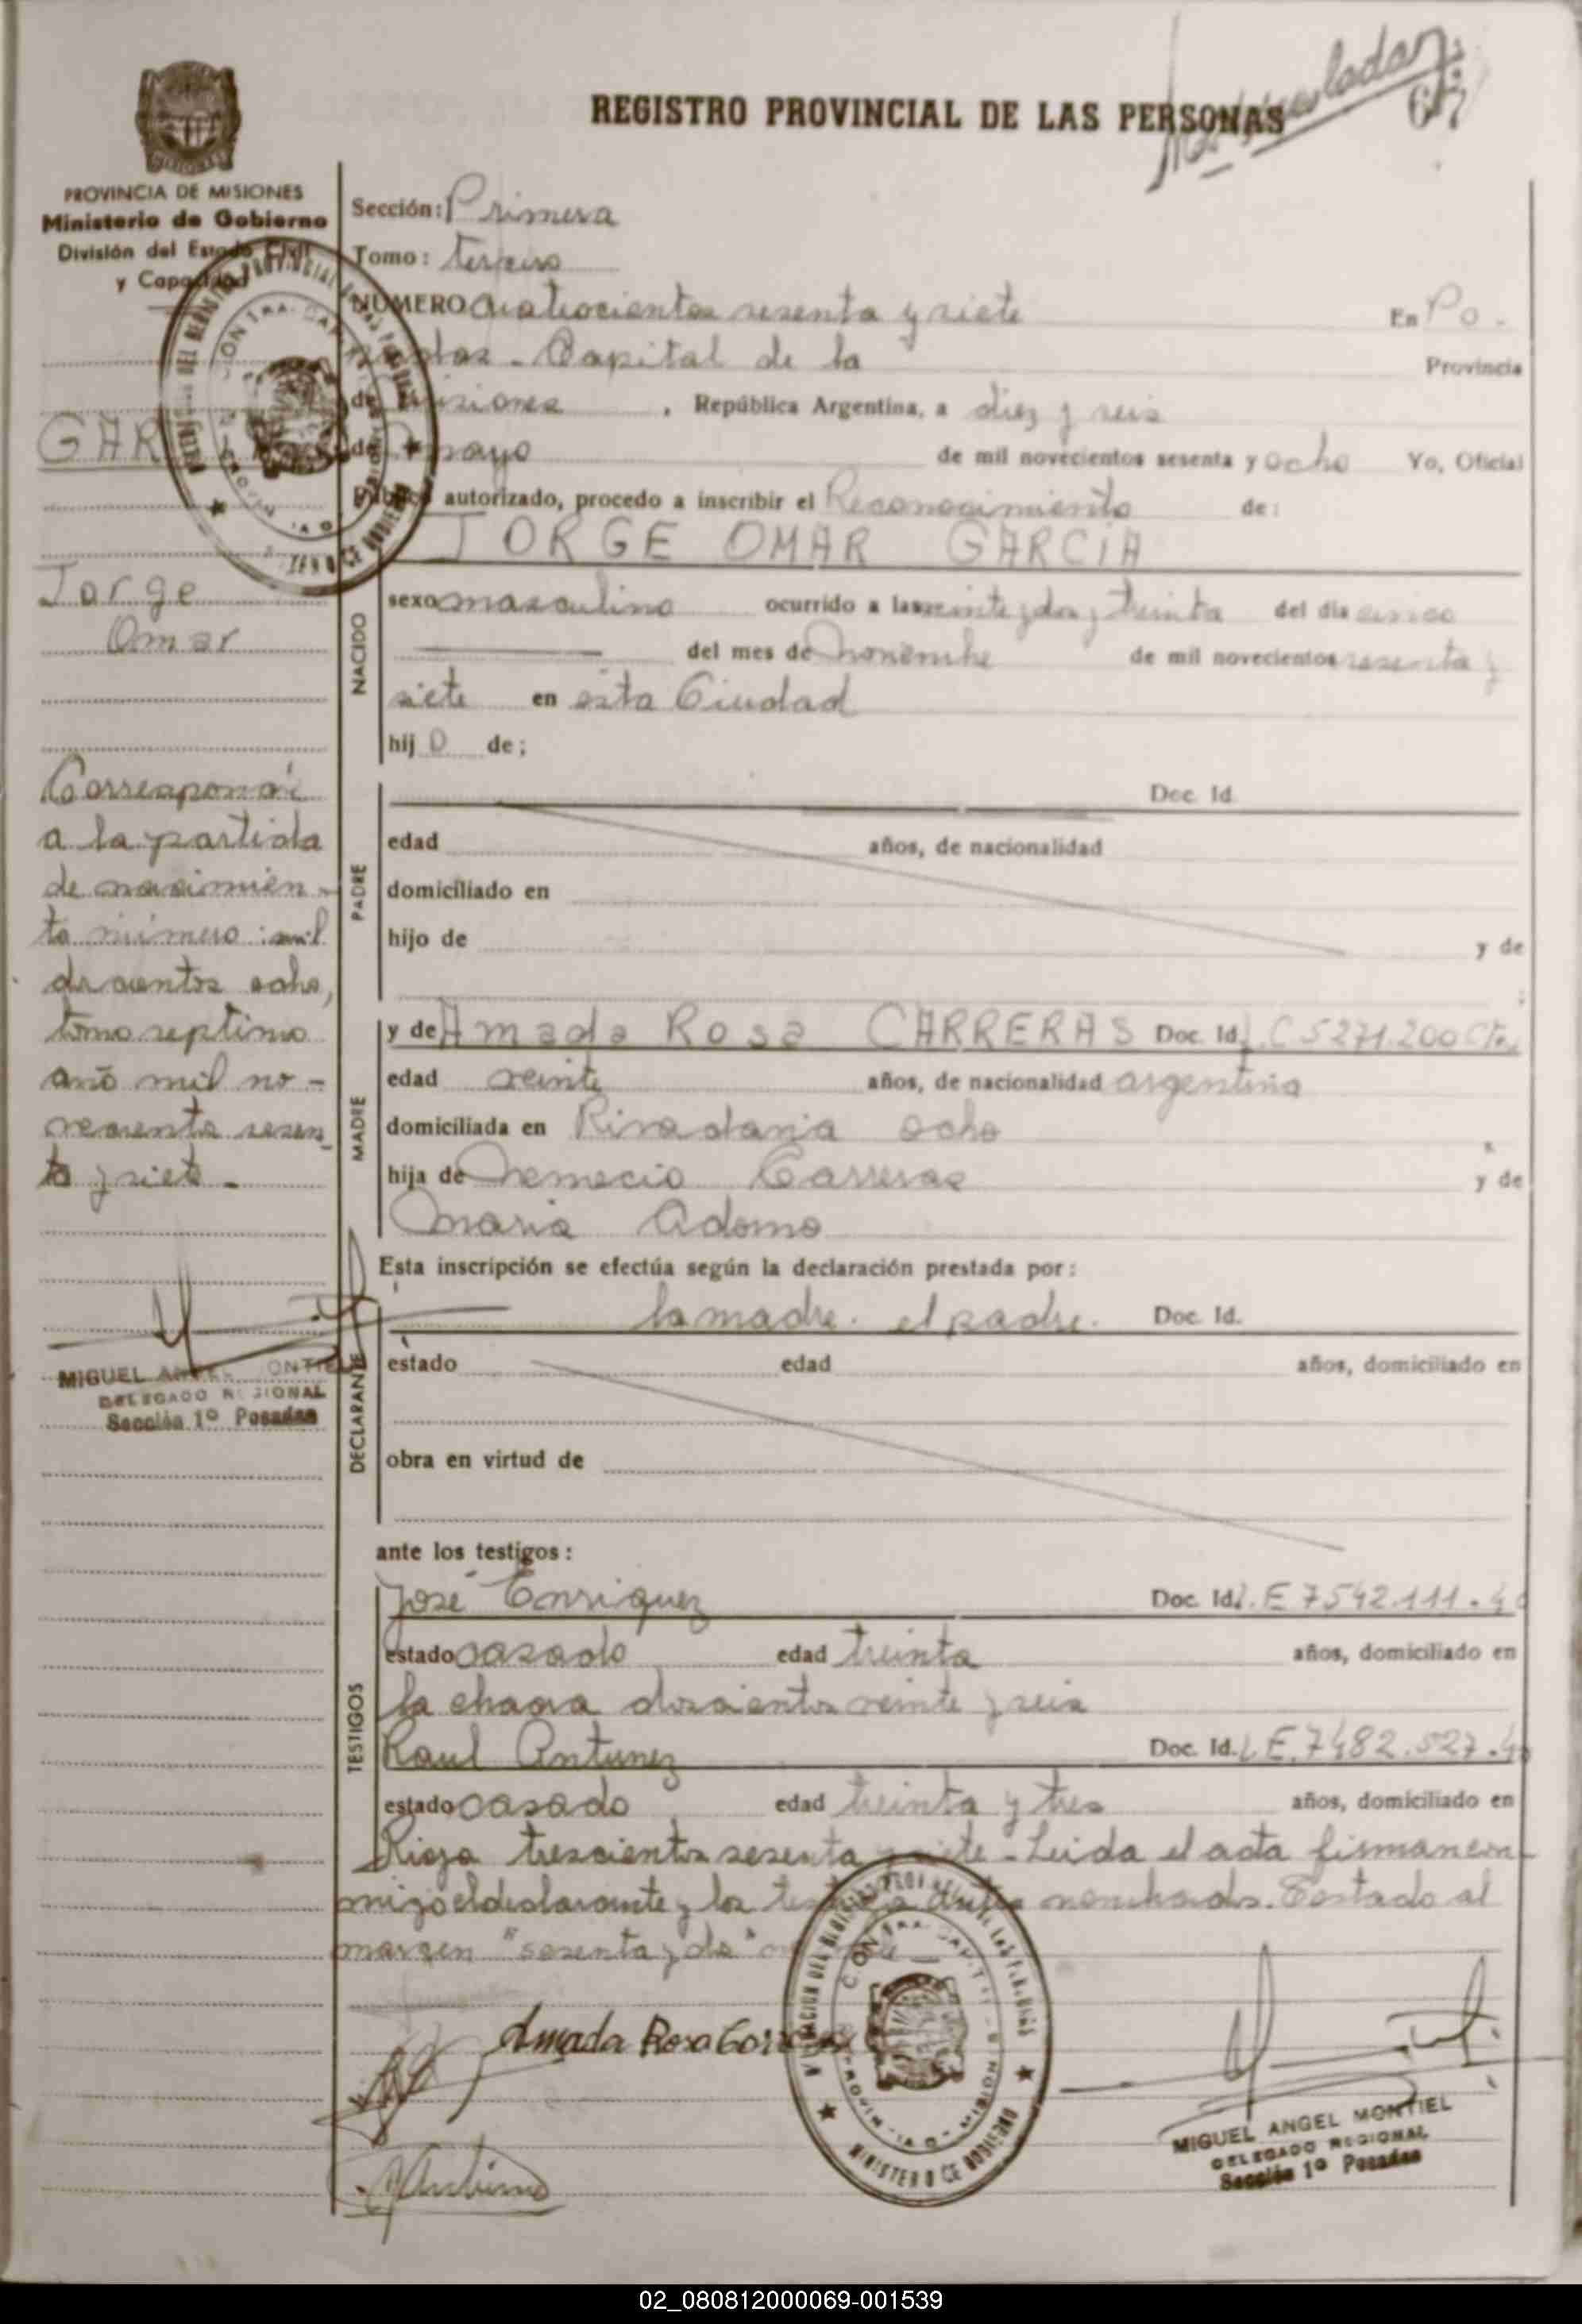 Matriculado
67
REGISTRO PROVINCIAL DE LAS PERSONAS
PROVINCIA DE MISIONES
Ministerio de Gobierno
División del Estado Civil
y Capacidad
GAR
Jorge
Omar
Corresponde
a la partida
de nacimien-
to número: mil
doscientos ocho,
tomo septimo
año mil no-
vecientos sesen
ta y siete.
MIGUEL ANGEL MONTIEL
DELEGADO REGIONAL
Sección 1º Posadas
Sección: Primera
Tomo: tercero
NUMERO cuatrocientos sesenta y siete En Po-
sadas - Capital de la Provincia
de Misiones, República Argentina, a diez y seis
de mayo de mil novecientos sesenta y ocho Yo, Oficial
Público autorizado, procedo a inscribir el Reconocimiento de:
JORGE OMAR GARCIA
NACIDO
sexo masculino ocurrido a las veinte y dos y treinta del dia cinco
del mes de Noviembre de mil novecientos sesenta y
siete en esta Ciudad
hij o de;
PADRE
Doc. Id.
edad años, de nacionalidad
domiciliado en
hijo de y de
MADRE
y de Amada Rosa CARRERAS Doc. Id. L.C 5271.200
edad veinte años, de nacionalidad argentina
domiciliada en Rivadavia ocho
hija de Nemecio Carreras y de
Maria Adorno
DECLARANTE
Esta inscripción se efectúa según la declaración prestada por:
la madre. el padre. Doc. Id.
estado edad años, domiciliado en
obra en virtud de
ante los testigos:
TESTIGOS
José Enriquez Doc. Id. L.E 7542.111.
estado casado edad treinta años, domiciliado en
la chacra doscientos veinte y seis
Raul Antunez Doc. Id. L.E.7482.527.
estado casado edad treinta y tres años, domiciliado en
Rioja trescientos sesenta y siete - Leida el acta firman con-
migo el declarante y los testigos antes nombrados. Testado al
margen "sesenta y dos"
Amada Rosa Carreras
MINISTERIO DE GOBIERNO
MIGUEL ANGEL MONTIEL
DELEGADO REGIONAL
Sección 1º Posadas
02_080812000069-001539